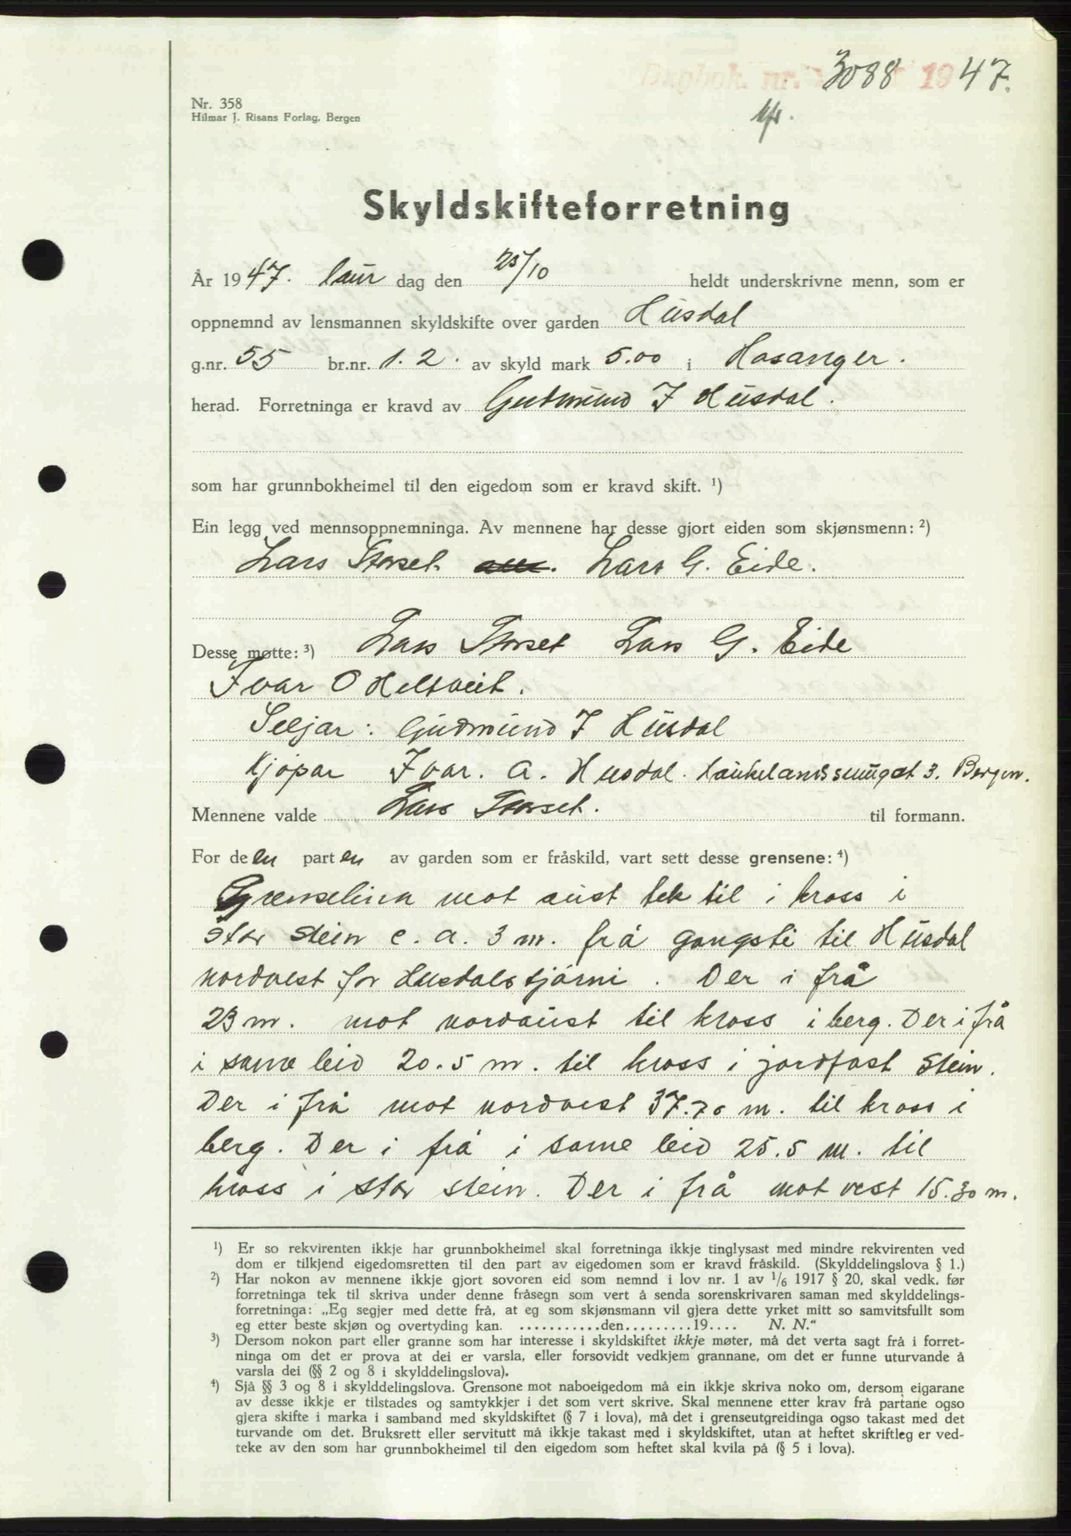 Dagbok nr. 3088 1947.
Nr. 358
Hilmar J. Risans Forlag, Bergen
Skyldskifteforretning
År 1947. laur dag den 25/10 heldt underskrivne menn, som er
oppnemnd av lensmannen skyldskifte over garden Husdal
g.nr. 55 br.nr. 1.2. av skyld mark 5.00 i Hosanger.
herad. Forretninga er kravd av Gudmund J Husdal.
som har grunnbokheimel til den eigedom som er kravd skift. ¹)
Ein legg ved mennsoppnemninga. Av mennene har desse gjort eiden som skjønsmenn: ²)
Lars Storset Lars G. Eide.
Desse møtte: ³) Lars Storset Lars G. Eide
Ivar O Heltveit.
Seljar: Gudmund J Husdal
Kjöpar Ivar. A. Husdal. Bergen.
Mennene valde Lars Storset. til formann.
For delen parten av garden som er fråskild, vart sett desse grensene: ⁴)
Grenselina mot aust tek til i kross i
stor stein c. a. 3 m. frå gangsti til Husdal
nordvest for Husdalstjörni. Der i frå
23 m. mot nordaust til kross i berg. Der i frå
i same leid 20.5 m. til kross i jordfast stein.
Der i frå mot nordvest 37.70 m. til kross i
berg. Der i frå i same leid 25.5 m. til
kross i stor stein. Der i frå mot vest 15.30 m.
¹) Er so rekvirenten ikkje har grunnbokheimel skal forretninga ikkje tinglysast med mindre rekvirenten ved
dom er tilkjend eigedomsretten til den part av eigedomen som er kravd fråskild. (Skylddelingslova § 1.)
²) Har nokon av mennene ikkje gjort sovoren eid som nemnd i lov nr. 1 av ¹/₆ 1917 § 20, skal vedk. før
forretninga tek til skriva under denne fråsegn som vert å senda sorenskrivaren saman med skylddelings-
forretninga: „Eg segjer med dette frå, at eg som skjønsmann vil gjera dette yrket mitt so samvitsfullt som
eg etter beste skjøn og overtyding kan. ...........den.........19.... N. N.“
³) Dersom nokon part eller granne som har interesse i skyldskiftet ikkje møter, må det verta sagt frå i forret-
ninga om det er prova at dei er varsla, eller forsovidt vedkjem grannane, om det er funne uturvande å
varsla dei (§§ 2 og 8 i skylddelingslova).
⁴) Sjå §§ 3 og 8 i skylddelingslova. Grensone mot naboeigedom må ein ikkje skriva noko om, dersom eigarane
av desse ikkje er tilstades og samtykkjer i det som vert skrive. Skal mennene etter krav frå partane ogso
gjera skifte i marka i samband med skyldskiftet (§ 7 i lova), må det i grenseutgreidinga ogso takast med det
turvande om det. Bruksrett eller servitutt må ikkje takast med i skyldskiftet, utan at heftet skriftleg er ved-
teke av den som har grunnbokheimel til den eigedom som heftet skal kvila på (§ 5 i lova).